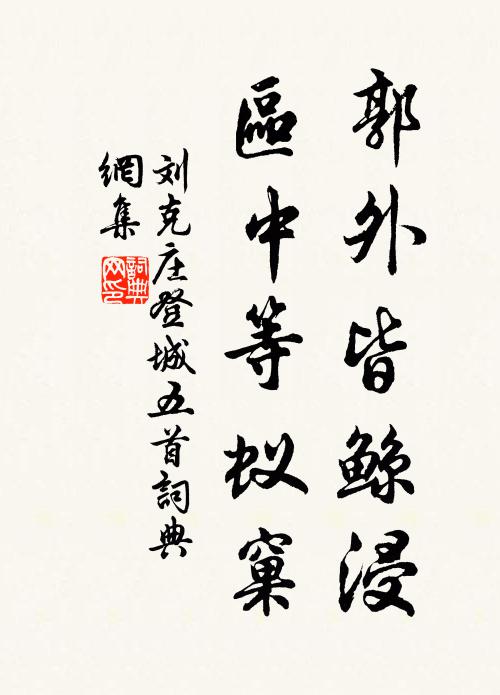 郭外皆鲸浸
區中等蚁窠
刘克庄登城五首詞典
網集
詞典
网印